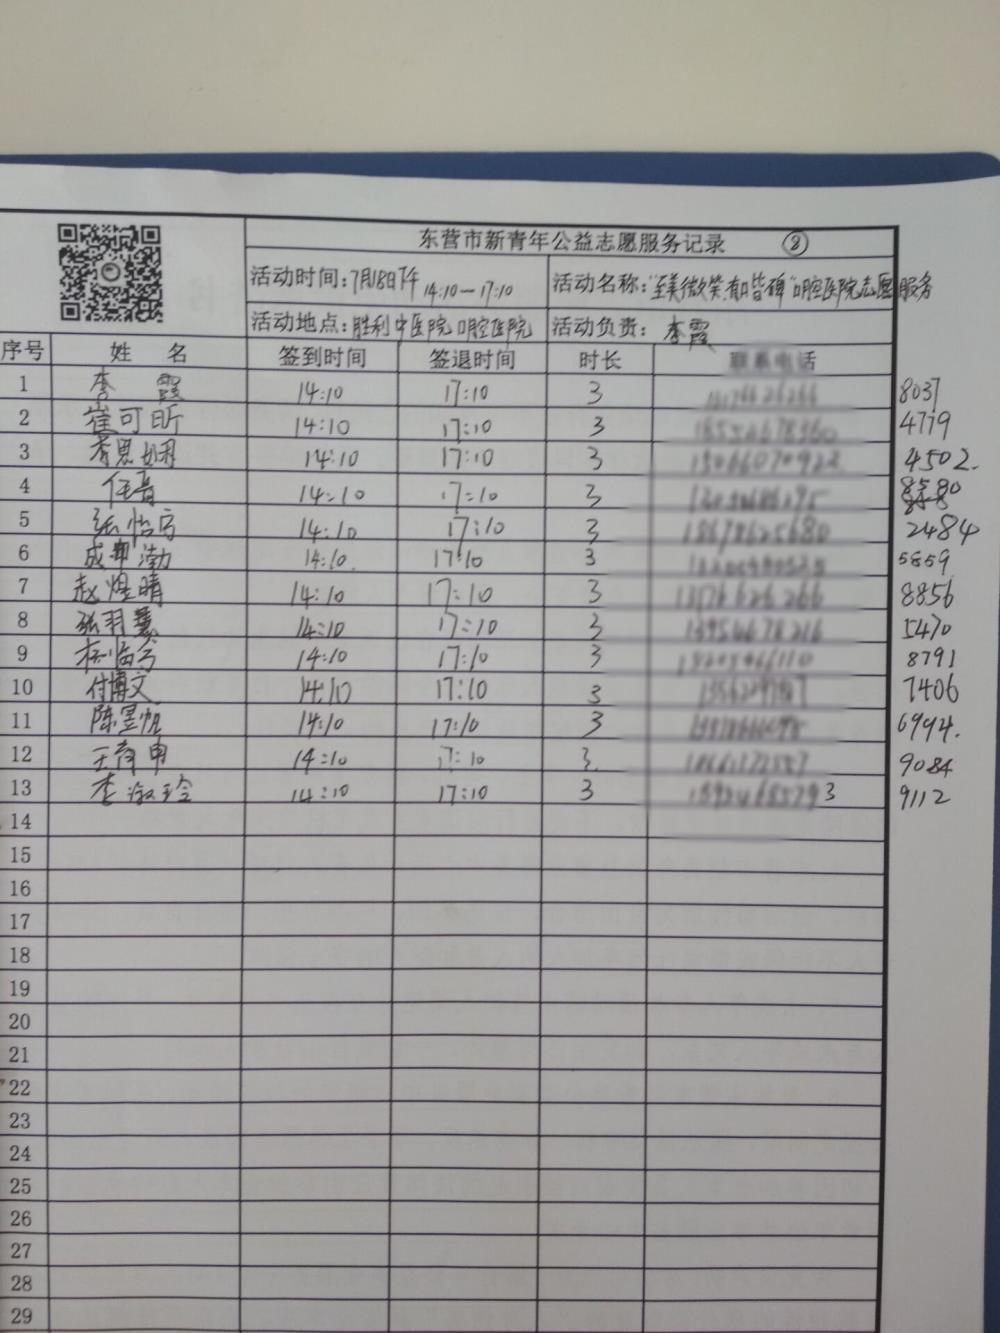 东营市新青年公益志愿服务记录 ⑧
活动时间：7月18日下午 14:10—17:10 活动名称：“至美微笑，有口皆碑”口腔医院志愿服务
活动地点：胜利中医院口腔医院 活动负责：李霞
序号 姓 名 签到时间 签退时间 时长 联系电话
1 李 霞 14:10 17:10 3 8037
2 崔可昕 14:10 17:10 3 4779
3 李思娴 14:10 17:10 3 4502.
4 任 14:10 17:10 3 8580
5 张怡 14:10 17:10 3 2484
6 成 渤 14:10. 17:10 3 5859
7 赵煜晴 14:10 17:10 3 8856
8 张羽 14:10 17:10 3 5470
9 杨临 14:10 17:10 3 8791
10 付博文 14:10 17:10 3 7406
11 陈昱帆 14:10 17:10 3 6994.
12 王 申 14:10 17:10 3. 9084
13 李淑玲 14:10 17:10 3 9112
14
15
16
17
18
19
20
21
22
23
24
25
26
27
28
29